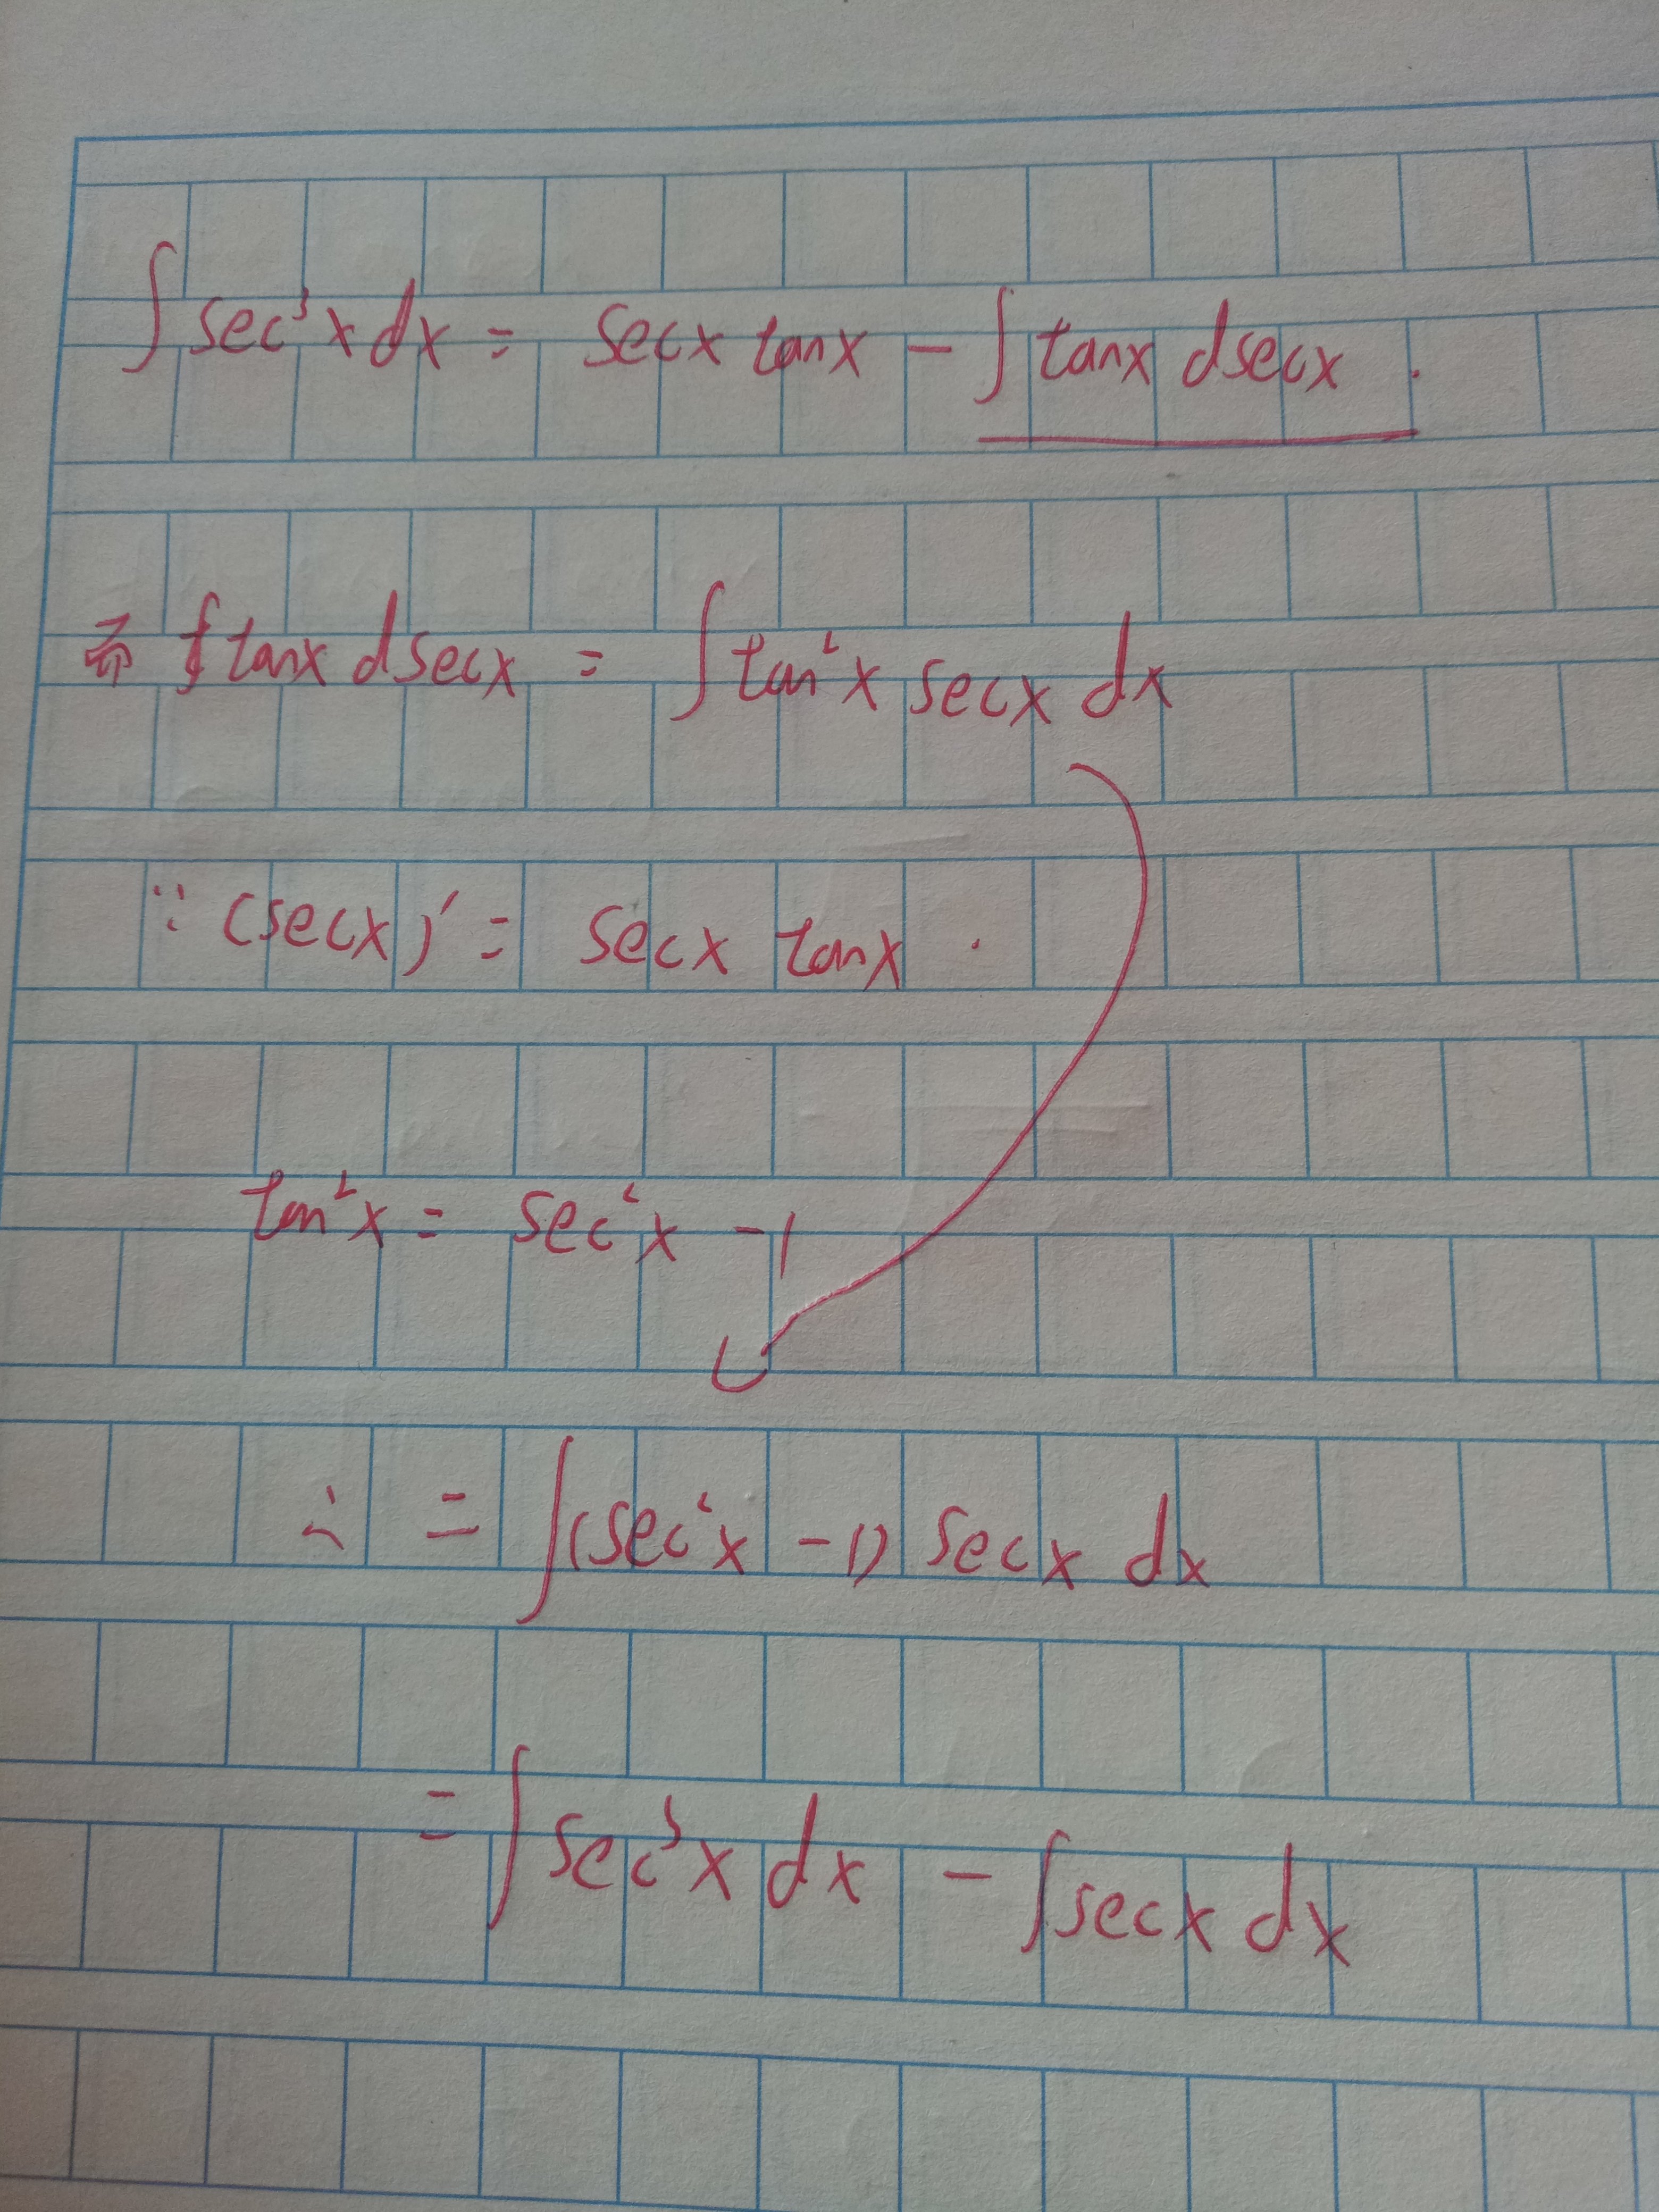 ∫ sec³x dx = secx tanx − ∫ tanx dsecx .
而 ∫ tanx dsecx = ∫ tan²x secx dx
∵ (secx)′ = secx tanx .
tan²x = sec²x −1
∴ = ∫(sec²x −1) secx dx
= ∫ sec³x dx − ∫ secx dx